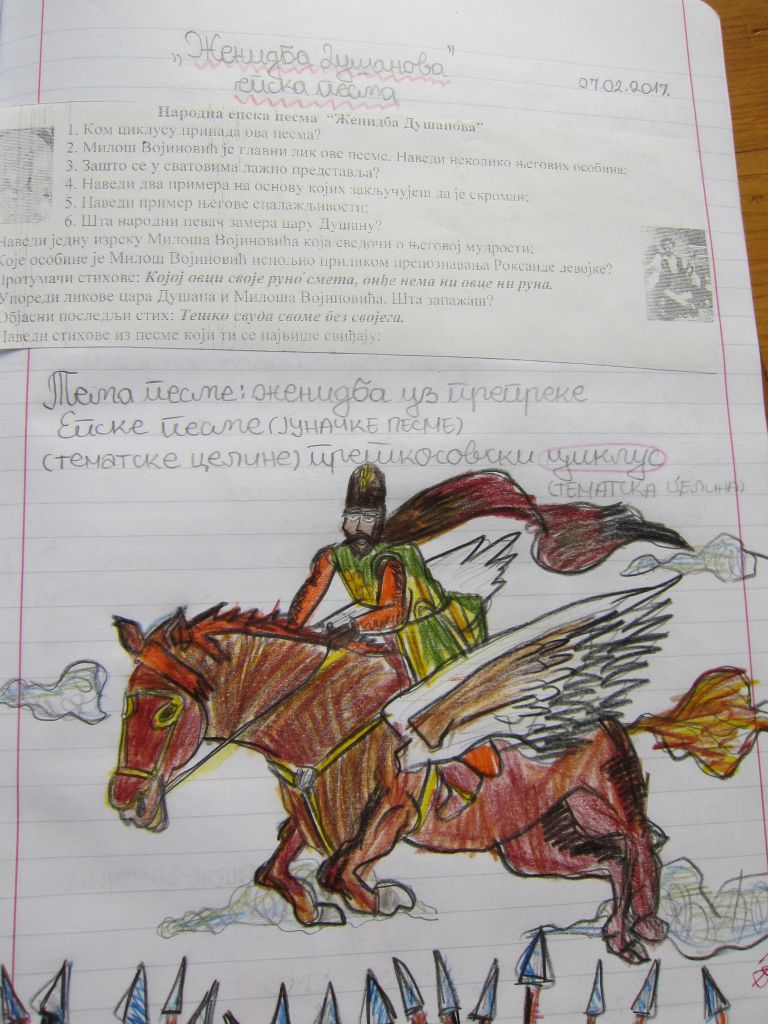 „Женидба Душанова”
епска песма
07.02.2017.
Народна епска песма “Женидба Душанова”
1. Ком циклусу припада ова песма?
2. Милош Војиновић је главни лик ове песме. Наведи неколико његових особина;
3. Зашто се у сватовима лажно представља?
4. Наведи два примера на основу којих закључујеш да је скроман;
5. Наведи пример његове сналажљивости;
6. Шта народни певач замера цару Душану?
Наведи једну изреку Милоша Војиновића која сведочи о његовој мудрости;
Које особине је Милош Војиновић испољио приликом препознавања Роксанде девојке?
Протумачи стихове: Којој овци своје руно смета, онђе нема ни овце ни руна.
Упореди ликове цара Душана и Милоша Војиновића. Шта запажаш?
Објасни последњи стих: Тешко свуда своме без својега.
Наведи стихове из песме који ти се највише свиђају;
Тема песме: женидба уз препреке
Епске песме (ЈУНАЧКЕ ПЕСМЕ)
(ТЕМАТСКЕ ЦЕЛИНЕ) преткосовски циклус
(ТЕМАТСКА ЦЕЛИНА)